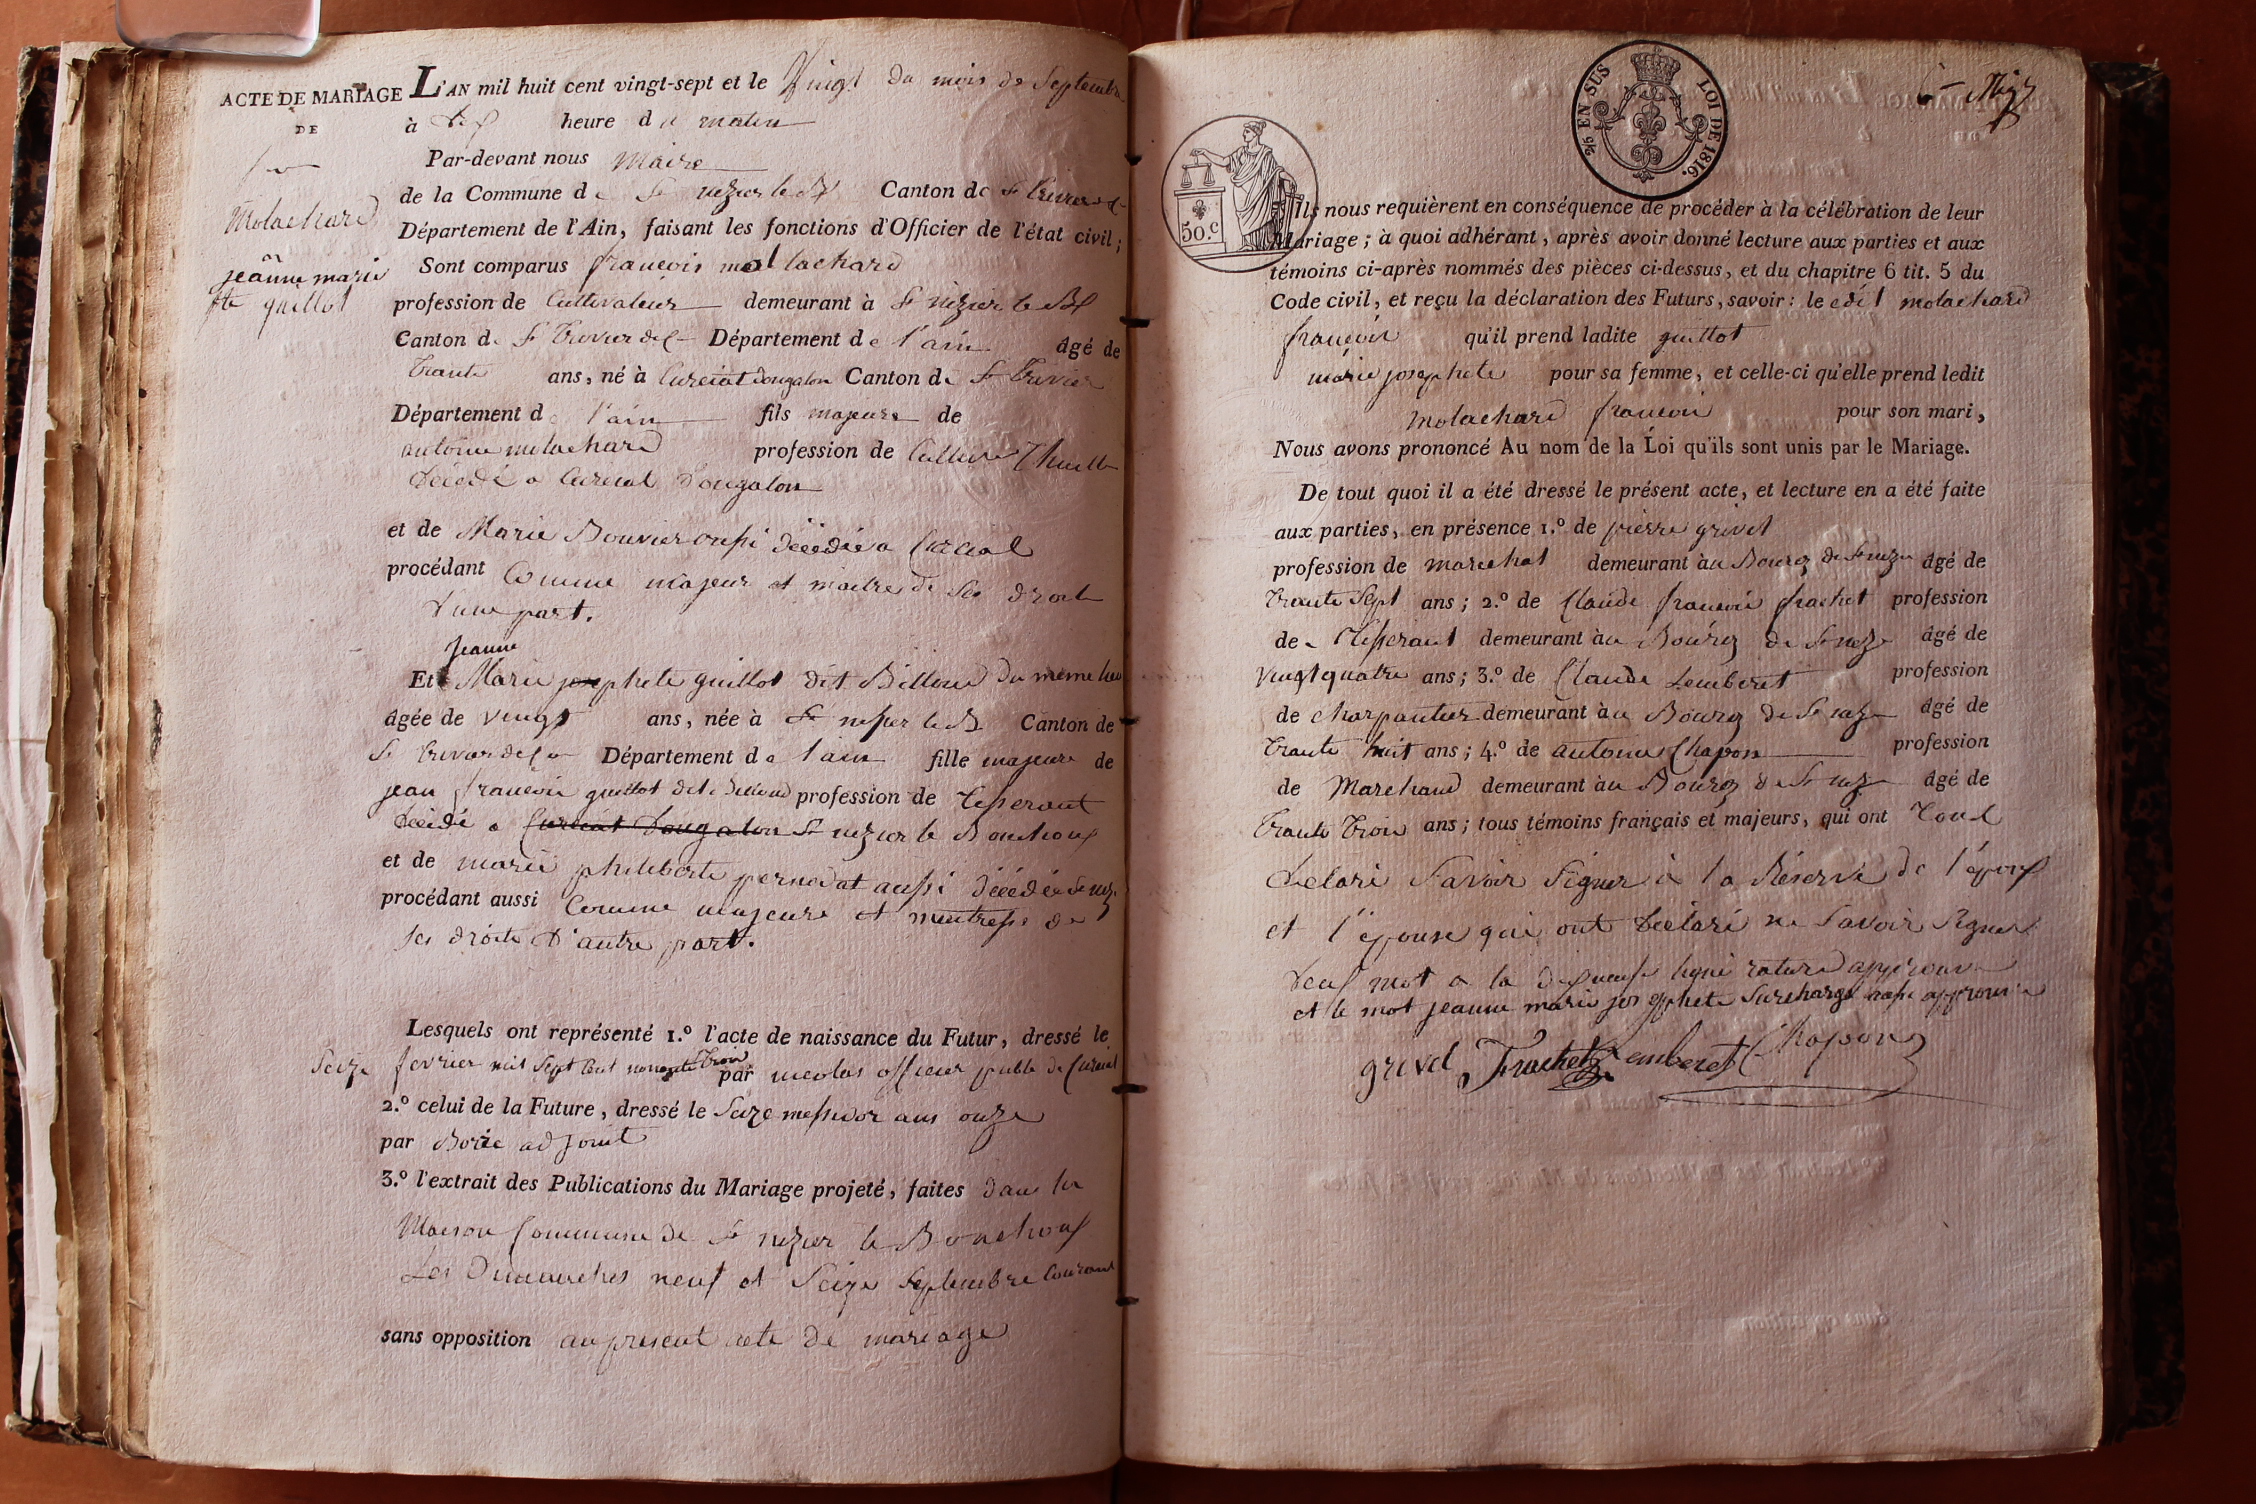 ACTE DE MARIAGE L'AN mil huit cent vingt-sept et le Vingt du mois de Septembre
DE à dix heure du matin
Par-devant nous Maire
de la Commune de St nizier le Bx Canton de St trivier de C
Molachard
Département de l'Ain, faisant les fonctions d'Officier de l'état civil;
jeanne marie Sont comparus françois mollachard
guillot profession de Cultivateur demeurant à St nizier le Bx
Canton de St trivier de C Département de l'ain âgé de
trante ans, né à Curciat dongalon Canton de St trivier
Département de l'ain fils majeure de
antoine molachard profession de
décédé a Curciat Dongalon
et de Marie Bouvier aussi décédée a Curciat
procédant Comme majeur et maitre de ses droit
d'une part.
jeanne
Et Marie josephete guillot dit Billoud du même lieu
âgée de vingt ans, née à St nisier le B Canton de
St trivier de C Département de l'ain fille majeure de
jean françois guillot dit Billoud profession de tisserant
décédé a Curciat Dongalon St nizier le Bouchoux
et de marie philiberte pernodat aussi décédée St niz
procédant aussi Comme majeure et maitresse de
ses droits d'autre part.
Lesquels ont représenté 1.º l'acte de naissance du Futur, dressé le
trois
Seize fevrier mil sept cent nonante par nicolas officier public de Curciat
2.º celui de la Future, dressé le Seize messidor ans onze
par Borée adjoint
3.º l'extrait des Publications du Mariage projeté, faites dans la
Maison Commune de St nizier le Bouchoux
Les Dimanches neuf et Seize Septembre Courant
sans opposition au present acte de mariage
EN SUS LOI DE 1816.
50.c
Ils nous requièrent en conséquence de procéder à la célébration de leur
Mariage; à quoi adhérant, après avoir donné lecture aux parties et aux
témoins ci-après nommés des pièces ci-dessus, et du chapitre 6 tit. 5 du
Code civil, et reçu la déclaration des Futurs, savoir: le edit molachard
françois qu'il prend ladite guillot
marie josephete pour sa femme, et celle-ci qu'elle prend ledit
molachard françois pour son mari,
Nous avons prononcé Au nom de la Loi qu'ils sont unis par le Mariage.
De tout quoi il a été dressé le présent acte, et lecture en a été faite
aux parties, en présence 1.º de pierre grivet
profession de marechal demeurant àu Bourg de St nizier âgé de
trante Sept ans; 2.º de Claude françois frachet profession
de tisserant demeurant àu Bourg de St niz âgé de
vingt quatre ans; 3.º de Claude Lemberet profession
de charpantier demeurant àu Bourg de St niz âgé de
trante huit ans; 4.º de antoine Chapon profession
de Marchand demeurant àu Bourg de St niz âgé de
trante trois ans; tous témoins français et majeurs, qui ont tous
declaré savoir signer à la Réserve de l'époux
et l'épouse qui ont déclaré ne savoir signer
deux mot a la dix neufe ligne raturé approuvé
et le mot jeanne marie josephete Surchargé approuvé
grivel Frachet Lemberet Chapon